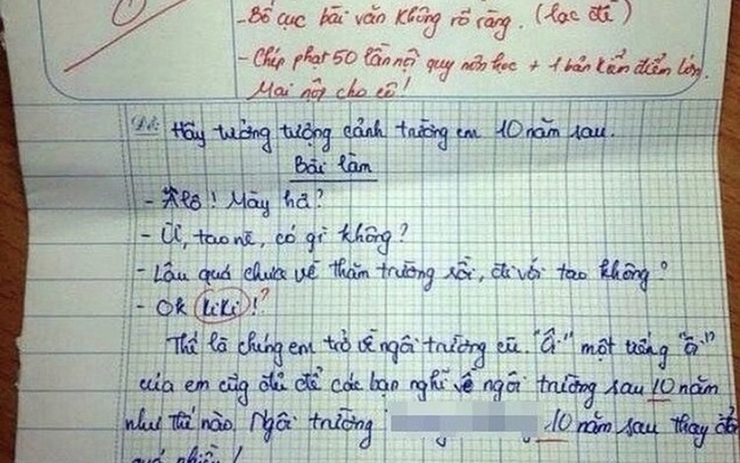 - Bố cục bài văn không rõ ràng. (lạc đề)
- Chép phạt 50 lần nội quy môn học + 1 bản kiểm điểm lớn.
Mai nộp cho cô!
Đề: Hãy tưởng tượng cảnh trường em 10 năm sau.
Bài làm
- Alô! Mày hả?
- Ừ, tao nè, có gì không?
- Lâu quá chưa về thăm trường rồi, đi với tao không?
- Ok kiki!?
Thế là chúng em trở về ngôi trường cũ. "Ôi" một tiếng "ôi"
của em cũg đủ để các bạn nghĩ về ngôi trường sau 10 năm
như thế nào. Ngôi trường 10 năm sau thay đổi
quá nhiều!